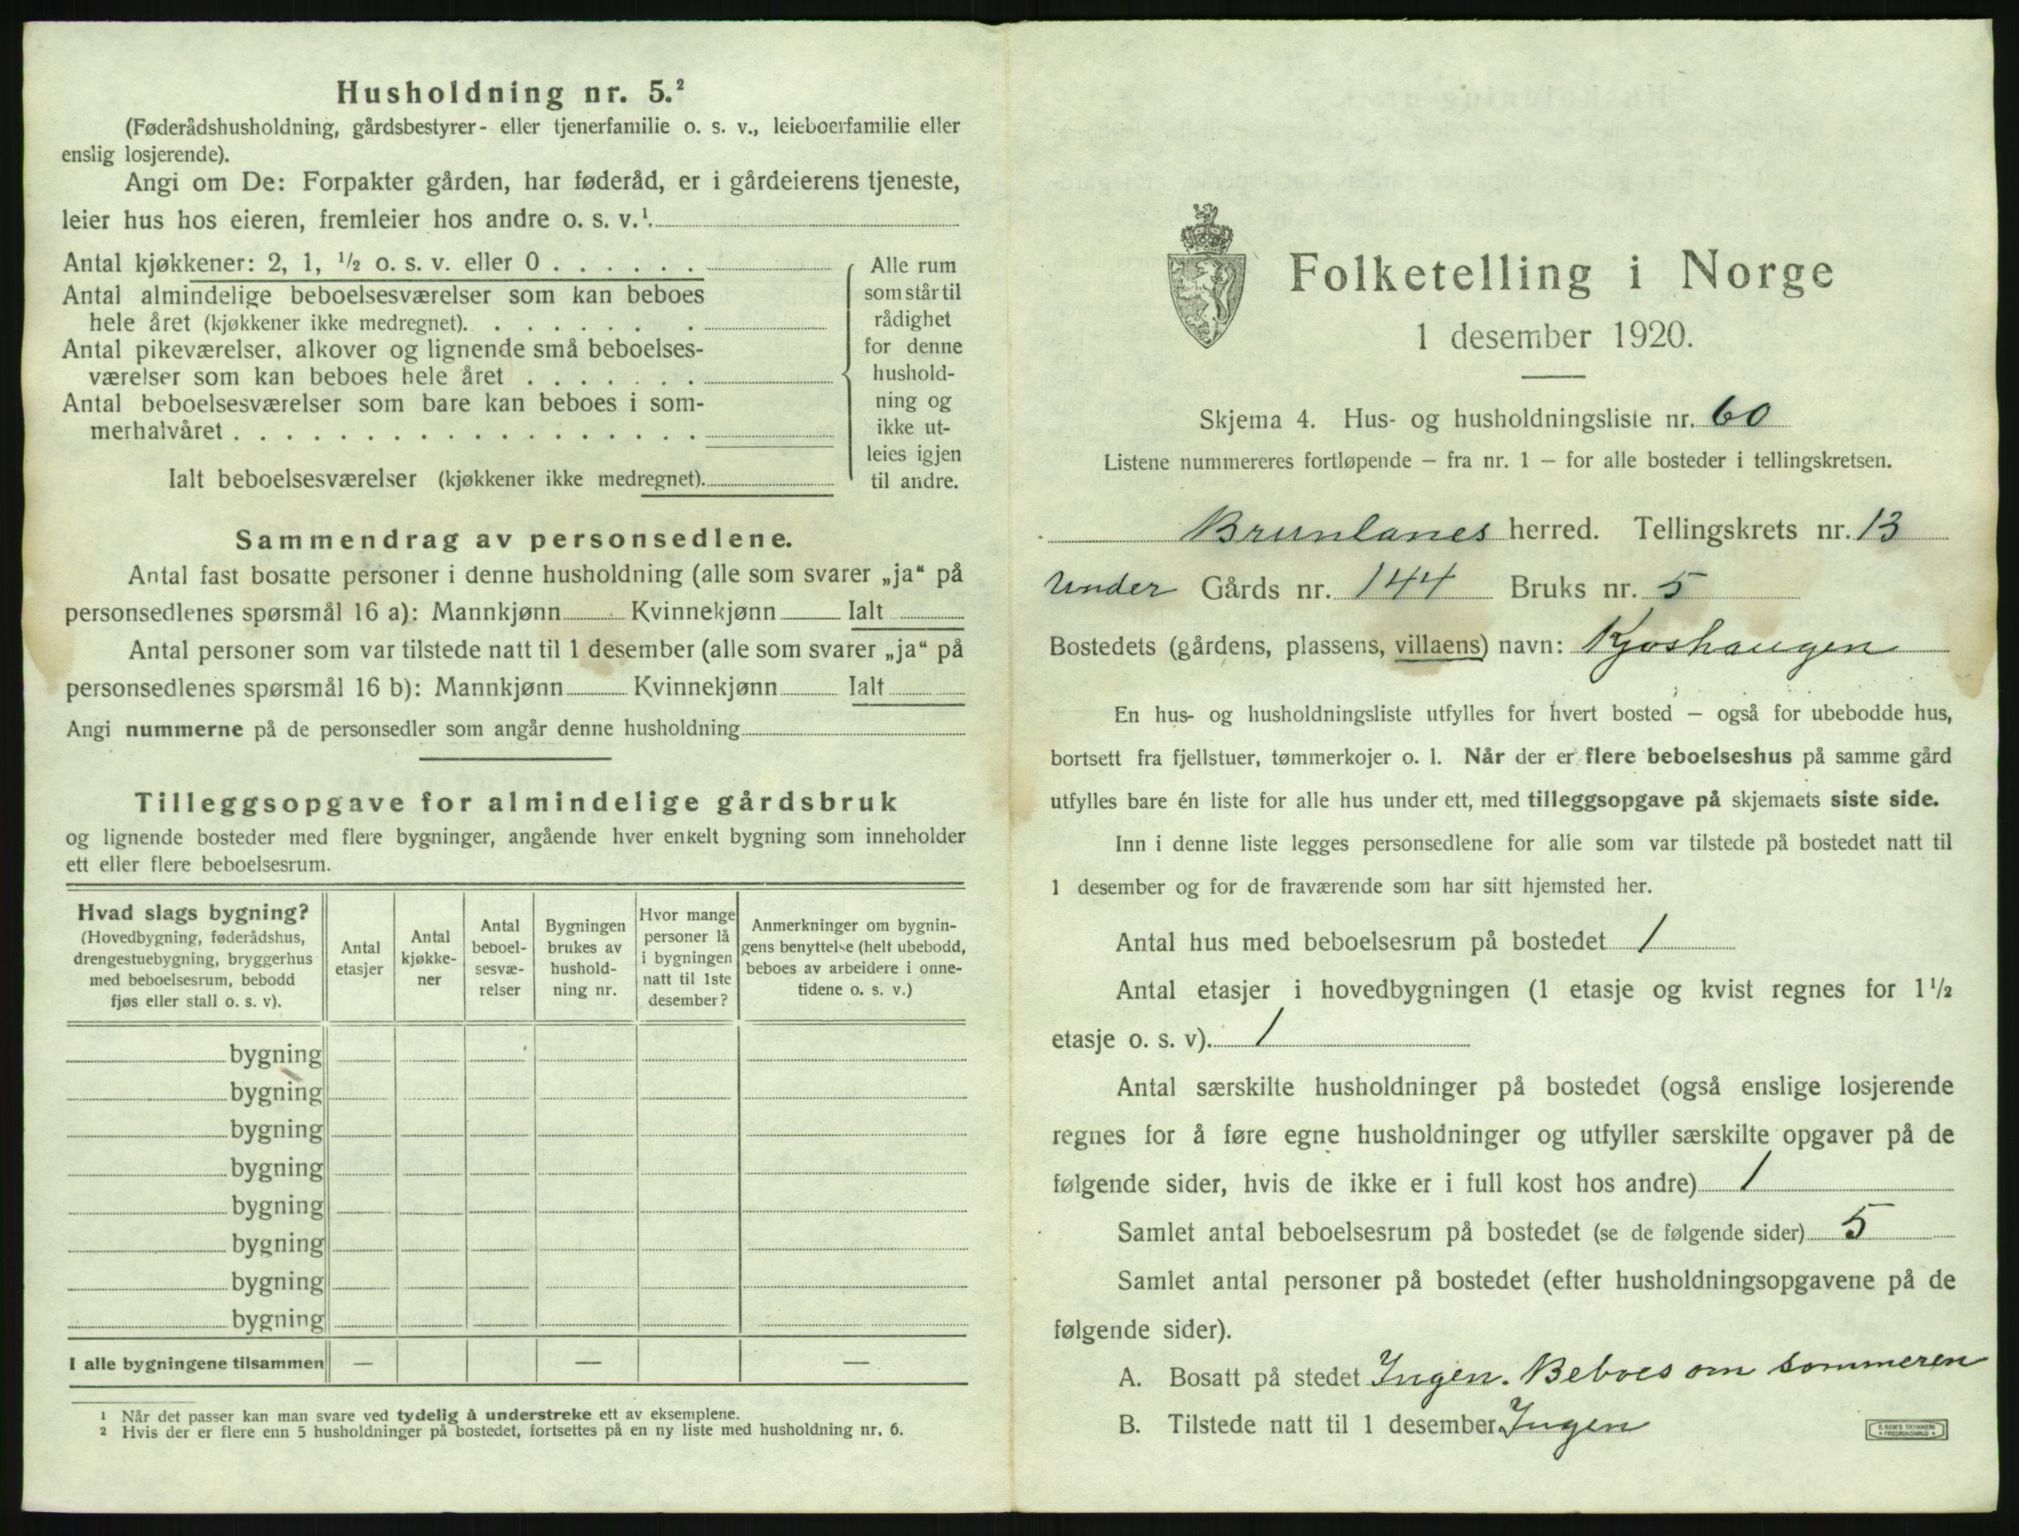 Husholdning nr. 5.²
(Føderådshusholdning, gårdsbestyrer- eller tjenerfamilie o. s. v., leieboerfamilie eller
enslig losjerende).
Angi om De: Forpakter gården, har føderåd, er i gårdeierens tjeneste,
leier hus hos eieren, fremleier hos andre o. s. v.¹.
Antal kjøkkener: 2, 1, ½ o. s. v. eller 0 . . . . . .
Antal almindelige beboelsesværelser som kan beboes
hele året (kjøkkener ikke medregnet). . . . . . . .
Antal pikeværelser, alkover og lignende små beboelses-
værelser som kan beboes hele året . . . . . . .
Antal beboelsesværelser som bare kan beboes i som-
merhalvåret . . . . . . . . . . . . . . . . . .
Ialt beboelsesværelser (kjøkkener ikke medregnet).
Alle rum
som står til
rådighet
for denne
hushold-
ning og
ikke ut-
leies igjen
til andre.
Sammendrag av personsedlene.
Antal fast bosatte personer i denne husholdning (alle som svarer „ja“ på
personsedlenes spørsmål 16 a): Mannkjønn Kvinnekjønn Ialt
Antal personer som var tilstede natt til 1 desember (alle som svarer „ja“ på
personsedlenes spørsmål 16 b): Mannkjønn Kvinnekjønn Ialt
Angi nummerne på de personsedler som angår denne husholdning
Tilleggsopgave for almindelige gårdsbruk
og lignende bosteder med flere bygninger, angående hver enkelt bygning som inneholder
ett eller flere beboelsesrum.
Hvad slags bygning?
(Hovedbygning, føderådshus,
drengestuebygning, bryggerhus
med beboelsesrum, bebodd
fjøs eller stall o. s. v).
Antal
etasjer
Antal
kjøkke-
ner
Antal
beboel-
sesvæ-
relser
Bygningen
brukes av
hushold-
ning nr.
Hvor mange
personer lå
i bygningen
natt til 1ste
desember?
Anmerkninger om bygnin-
gens benyttelse (helt ubebodd,
beboes av arbeidere i onne-
tidene o. s. v.)
bygning
bygning
bygning
bygning
bygning
bygning
bygning
bygning
I alle bygningene tilsammen — — —
¹ Når det passer kan man svare ved tydelig å understreke ett av eksemplene.
² Hvis der er flere enn 5 husholdninger på bostedet, fortsettes på en ny liste med husholdning nr. 6.
Folketelling i Norge
1 desember 1920.
Skjema 4. Hus- og husholdningsliste nr. 60
Listene nummereres fortløpende – fra nr. 1 – for alle bosteder i tellingskretsen.
Brunlanes herred. Tellingskrets nr. 13
under Gårds nr. 144 Bruks nr. 5
Bostedets (gårdens, plassens, villaens) navn: Kjoshaugen
En hus- og husholdningsliste utfylles for hvert bosted – også for ubebodde hus,
bortsett fra fjellstuer, tømmerkojer o. l. Når der er flere beboelseshus på samme gård
utfylles bare én liste for alle hus under ett, med tilleggsopgave på skjemaets siste side.
Inn i denne liste legges personsedlene for alle som var tilstede på bostedet natt til
1 desember og for de fraværende som har sitt hjemsted her.
Antal hus med beboelsesrum på bostedet 1
Antal etasjer i hovedbygningen (1 etasje og kvist regnes for 1½
etasje o. s. v). 1
Antal særskilte husholdninger på bostedet (også enslige losjerende
regnes for å føre egne husholdninger og utfyller særskilte opgaver på de
følgende sider, hvis de ikke er i full kost hos andre) 1
Samlet antal beboelsesrum på bostedet (se de følgende sider) 5
Samlet antal personer på bostedet (efter husholdningsopgavene på de
følgende sider).
A. Bosatt på stedet Ingen. Beboes om sommeren
B. Tilstede natt til 1 desember Ingen